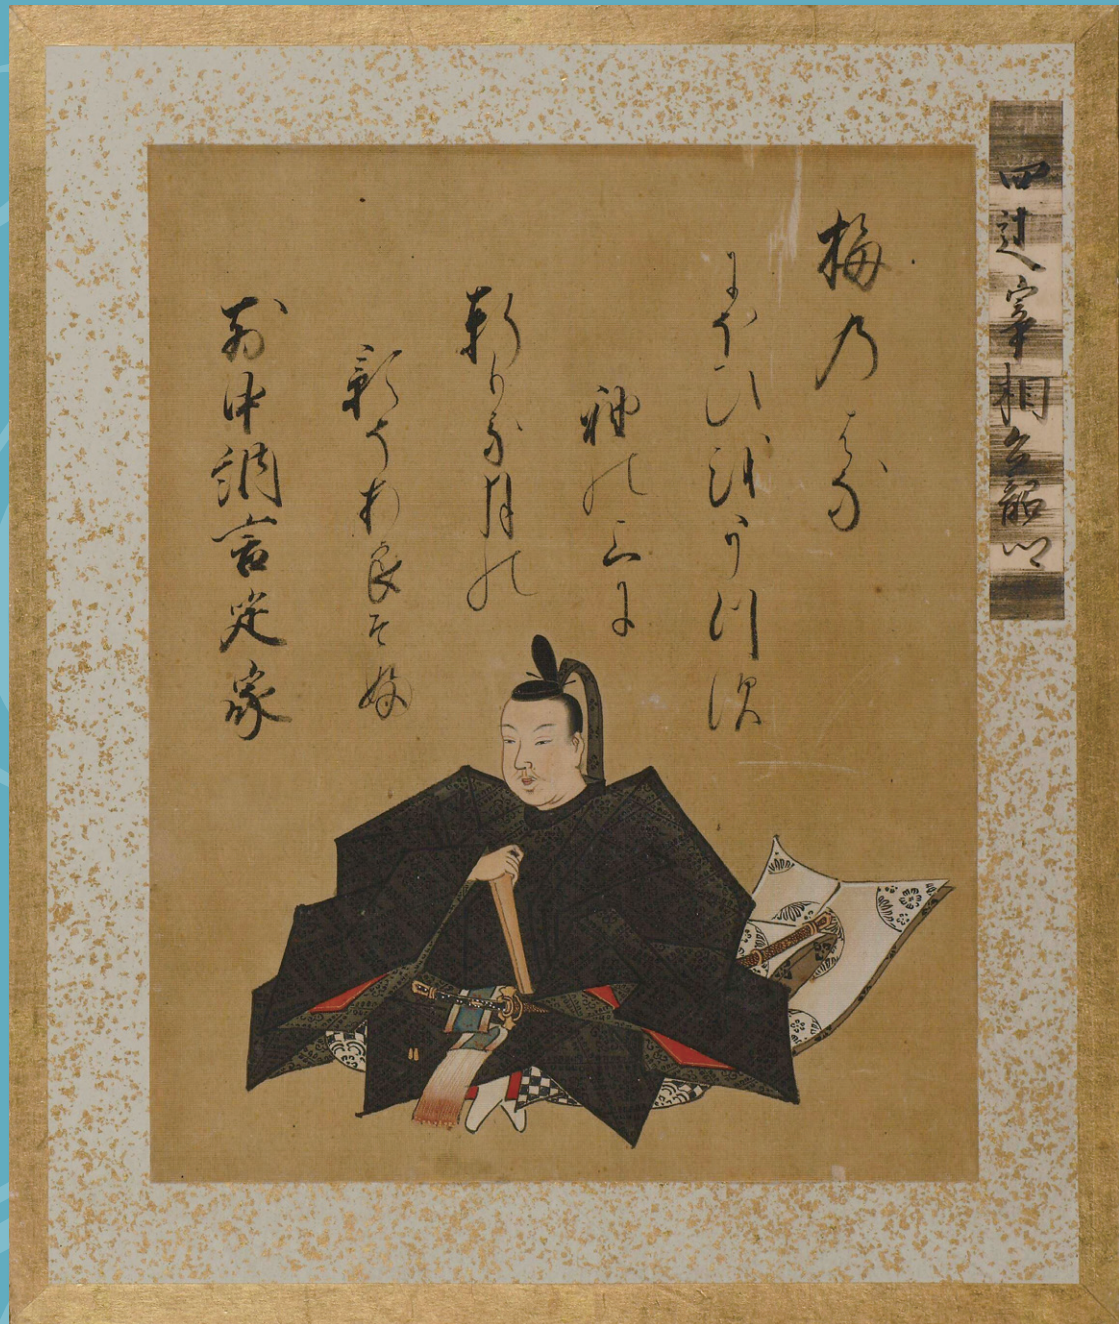 四辻宰相公韶卿
梅乃はな
にほひをうつす
袖の上に
軒もる月の
影そあらそふ
前中納言定家